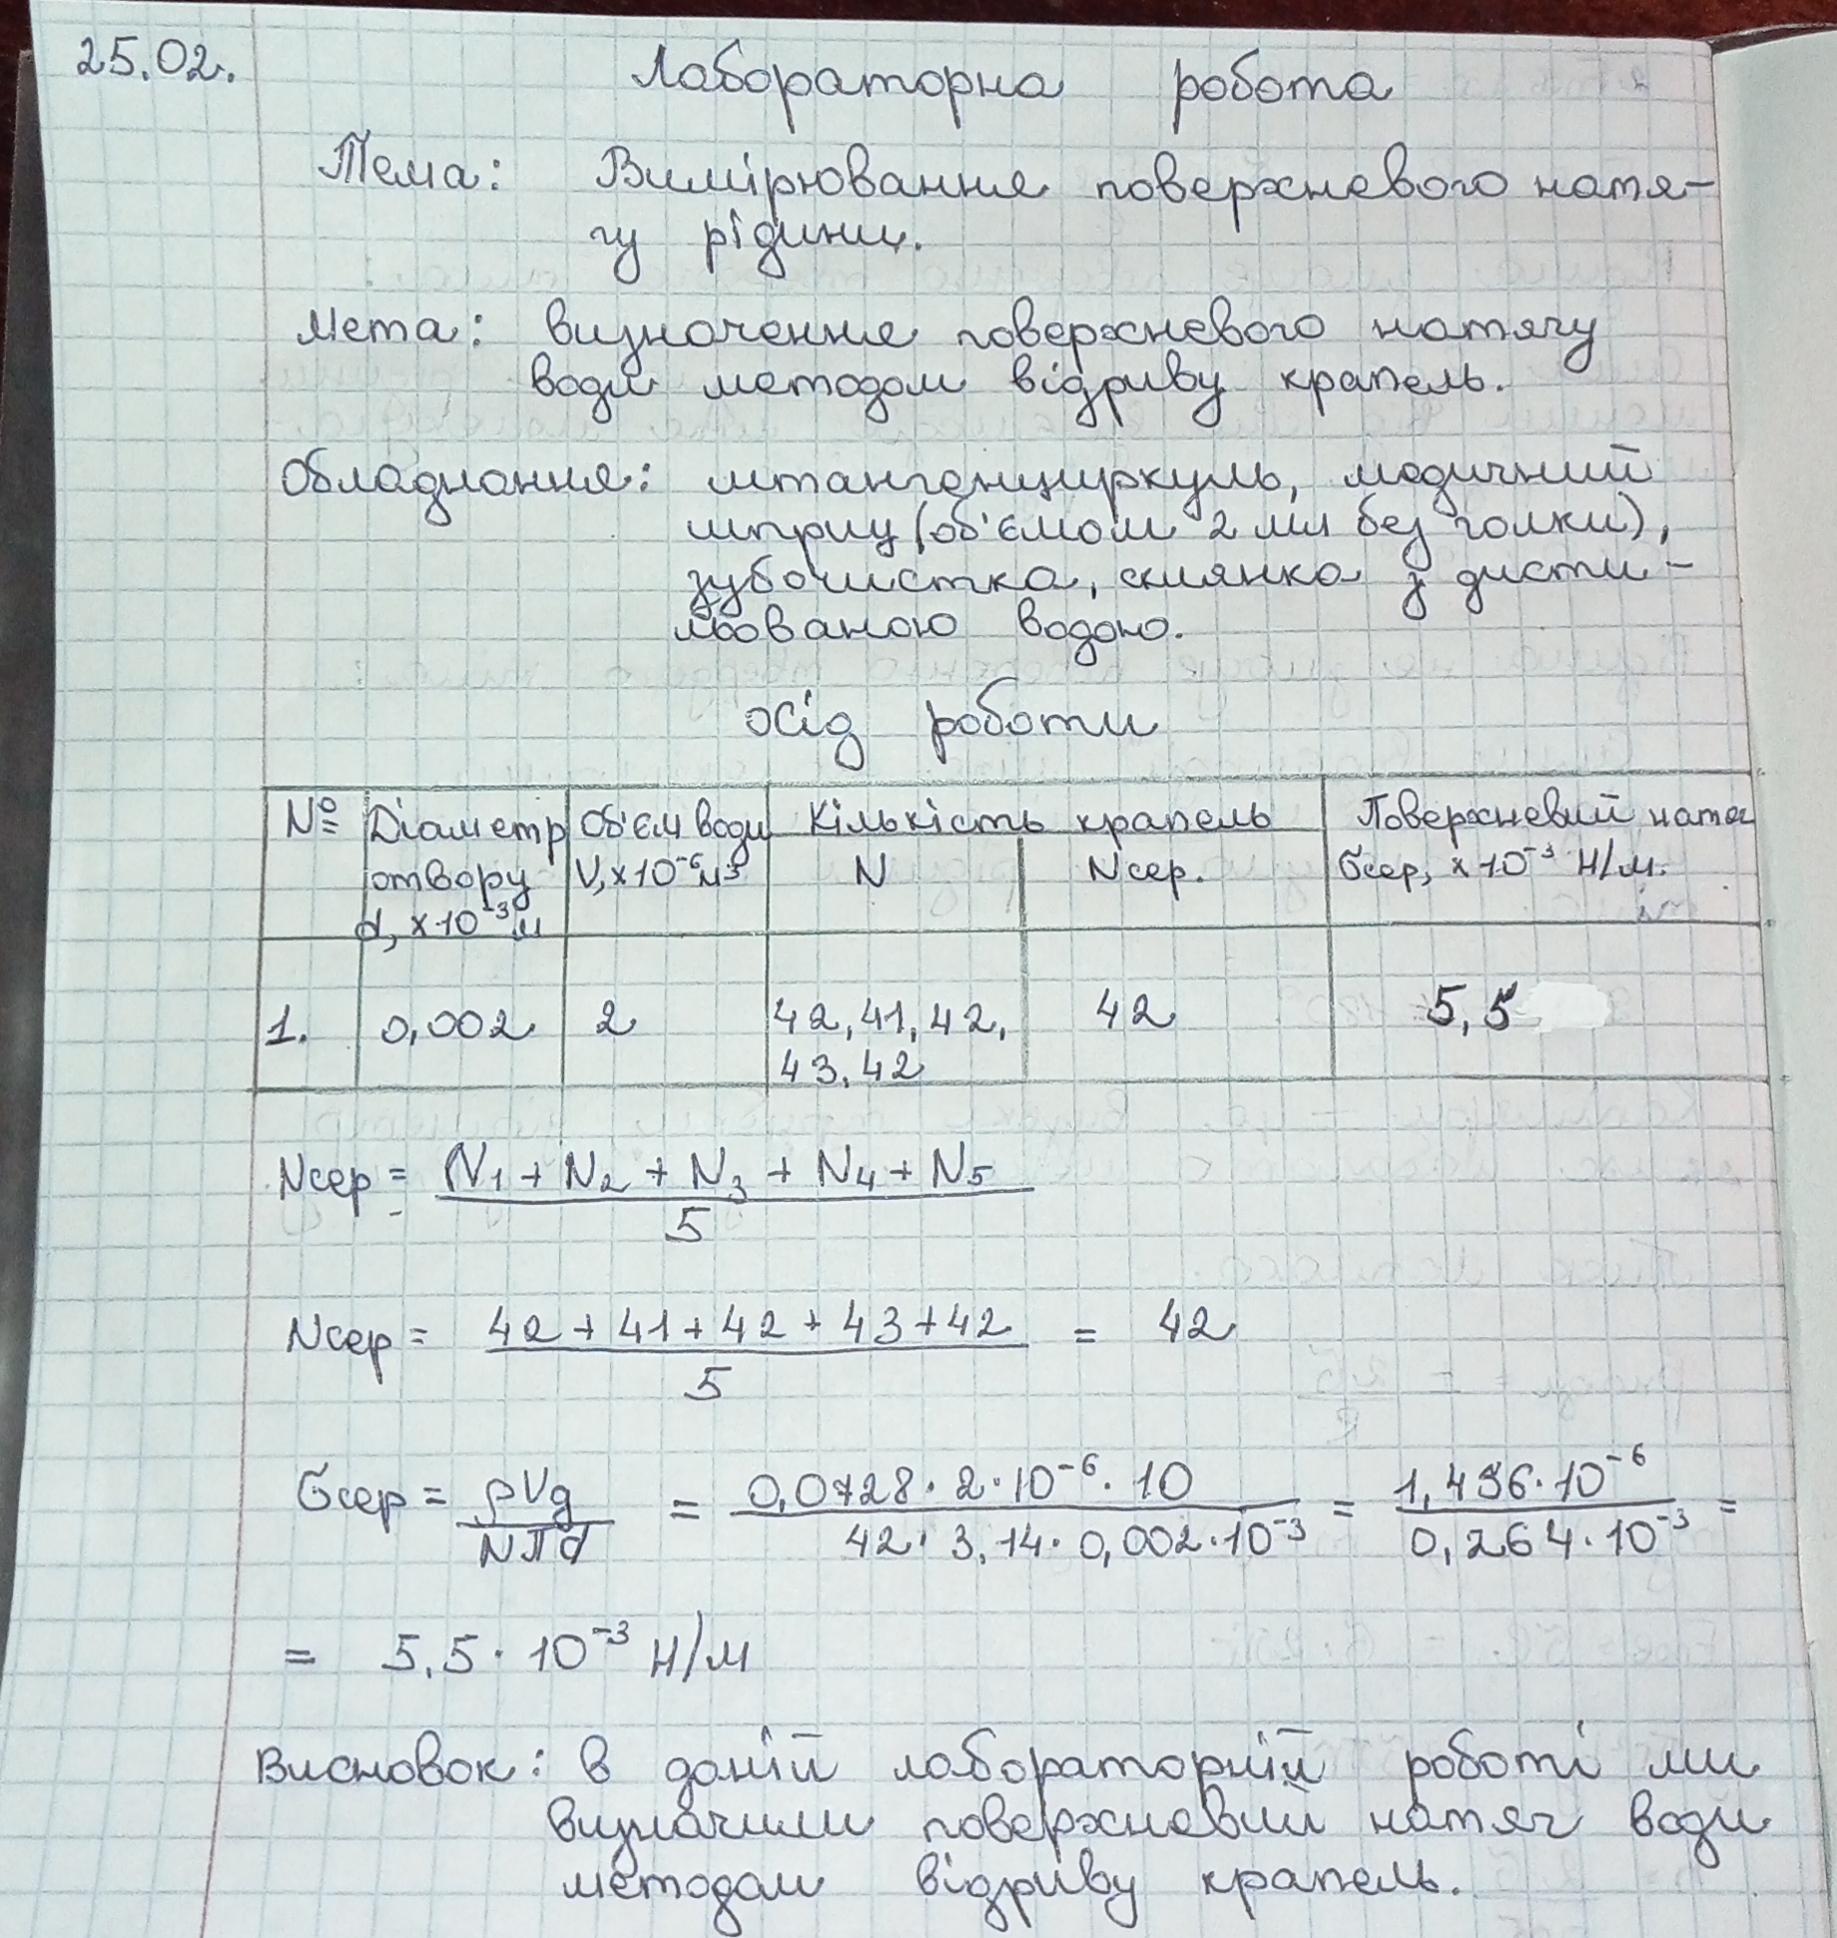 25.02.
Лабораторна робота
Тема: Вимірювання поверхневого натя-
гу рідини.
Мета: визначення поверхневого натягу
води методом відриву крапель.
Обладнання: штангенциркуль, медичний
шприц (об'ємом 2 мл без голки),
зубочистка, склянка з дисти-
льованою водою.
Хід роботи
№ Діаметр отвору d, ×10⁻³м Об'єм води V, ×10⁻⁶м³ Кількість крапель N Nсер. Поверхневий натяг σсер, ×10⁻³ Н/м.
1. 0,002 2 42, 41, 42, 43, 42 42 5,5
Nсер = (N₁ + N₂ + N₃ + N₄ + N₅) / 5
Nсер = (42 + 41 + 42 + 43 + 42) / 5 = 42
σсер = ρVg / Nπd = 0,0728 · 2 · 10⁻⁶ · 10 / 42 · 3,14 · 0,002 · 10⁻³ = 1,456 · 10⁻⁶ / 0,264 · 10⁻³ =
= 5,5 · 10⁻³ Н/м
Висновок: в даній лабораторній роботі ми
визначили поверхневий натяг води
методом відриву крапель.